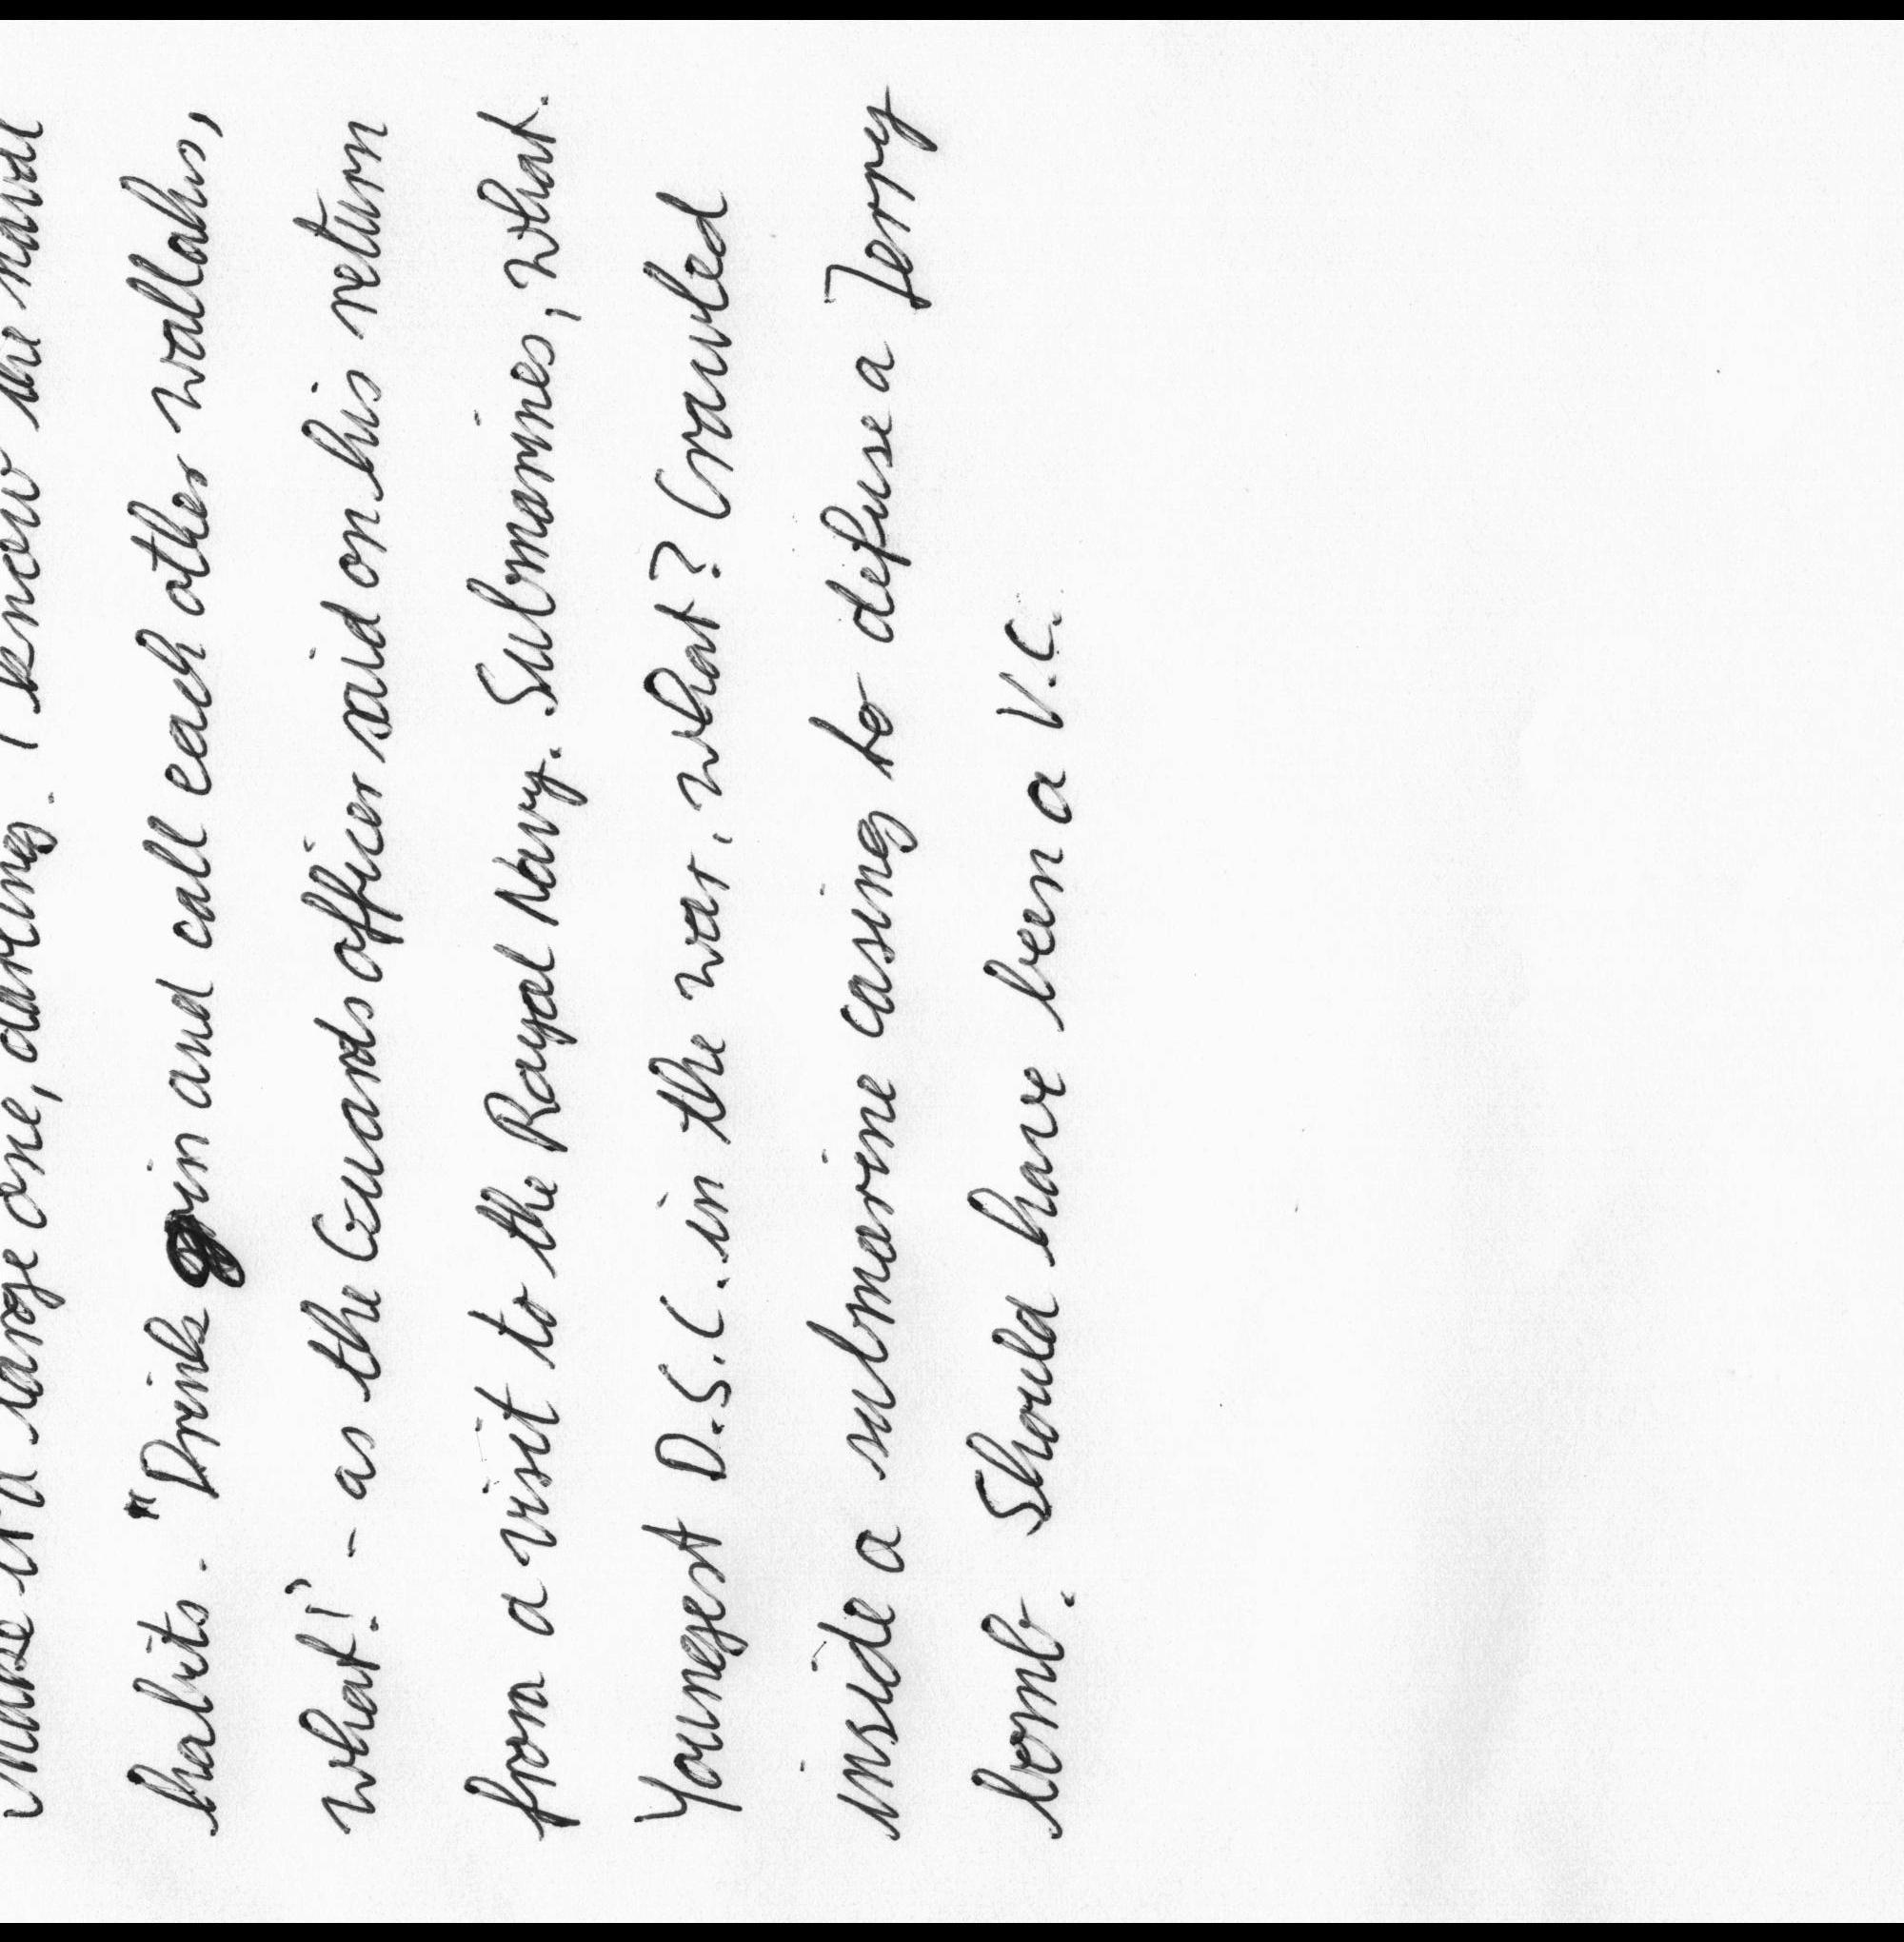 Make it a large one, darling. I know the naval
habits. "Drinks gin and call each other wallahs,
what!" - as the Guards officer said on his return
from a visit to the Royal Navy. Submarines, what.
Youngest D.S.C. in the war, what? Crawled
inside a submarine casing to defuse a Jerry
bomb. Should have been a V.C.